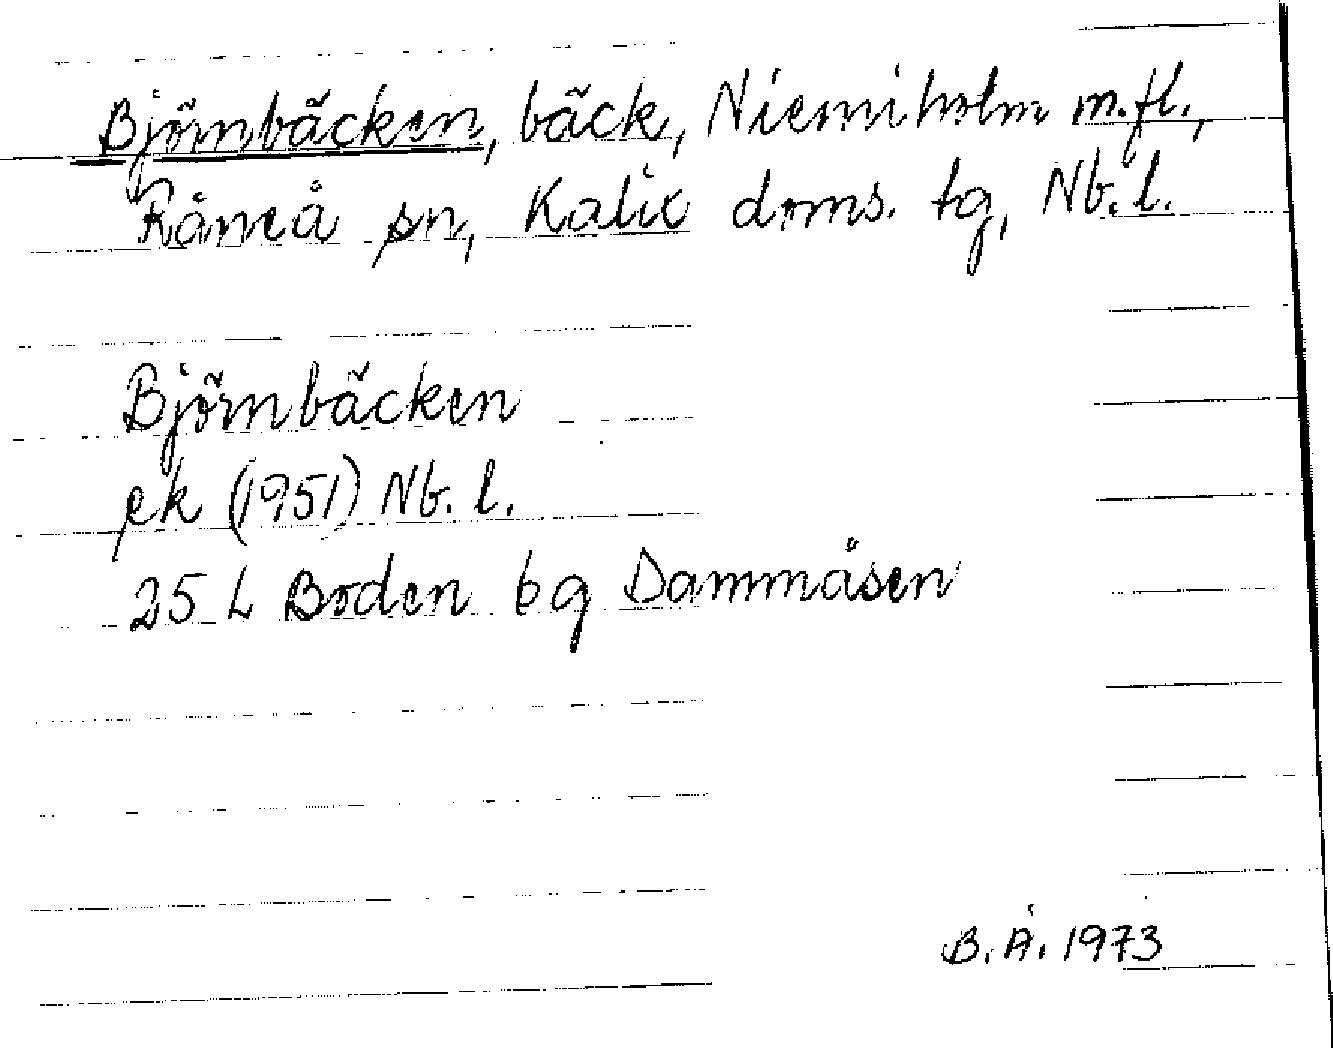 Björnbäcken, bäck, Niemiholm m.fl.,
Råneå sn, Kalix doms. tg, Nb. l.
Björnbäcken
ek (1951) Nb. l.
25 L Boden 6g Dammåsen
B. Å. 1973